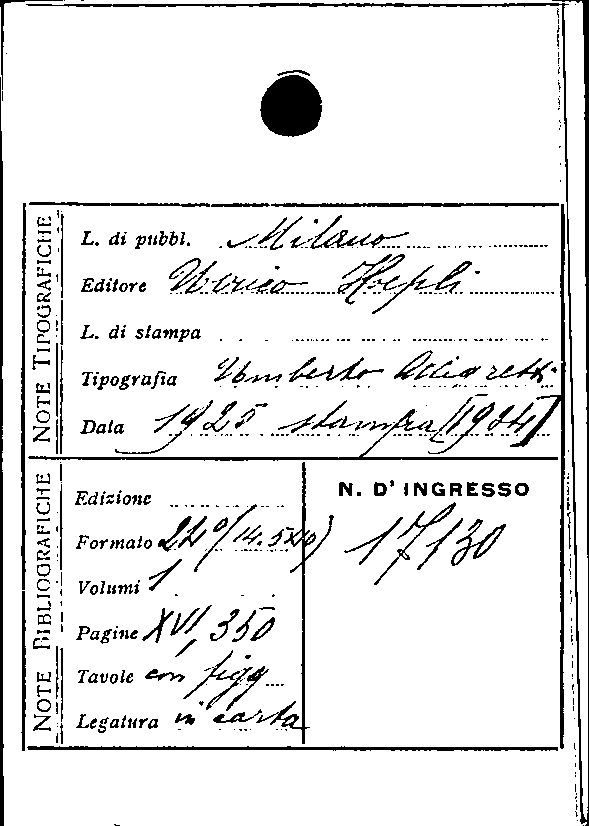 NOTE TIPOGRAFICHE
L. di pubbl. Milano
Editore Ulrico Hoepli
L. di stampa
Tipografia Umberto Allegretti
Data 1925 stampa [1924]
NOTE BIBLIOGRAFICHE
Edizione
Formato 24° (14.5x
Volumi 1
Pagine XVI, 350
Tavole con figg
Legatura in carta
N. D' INGRESSO
17130